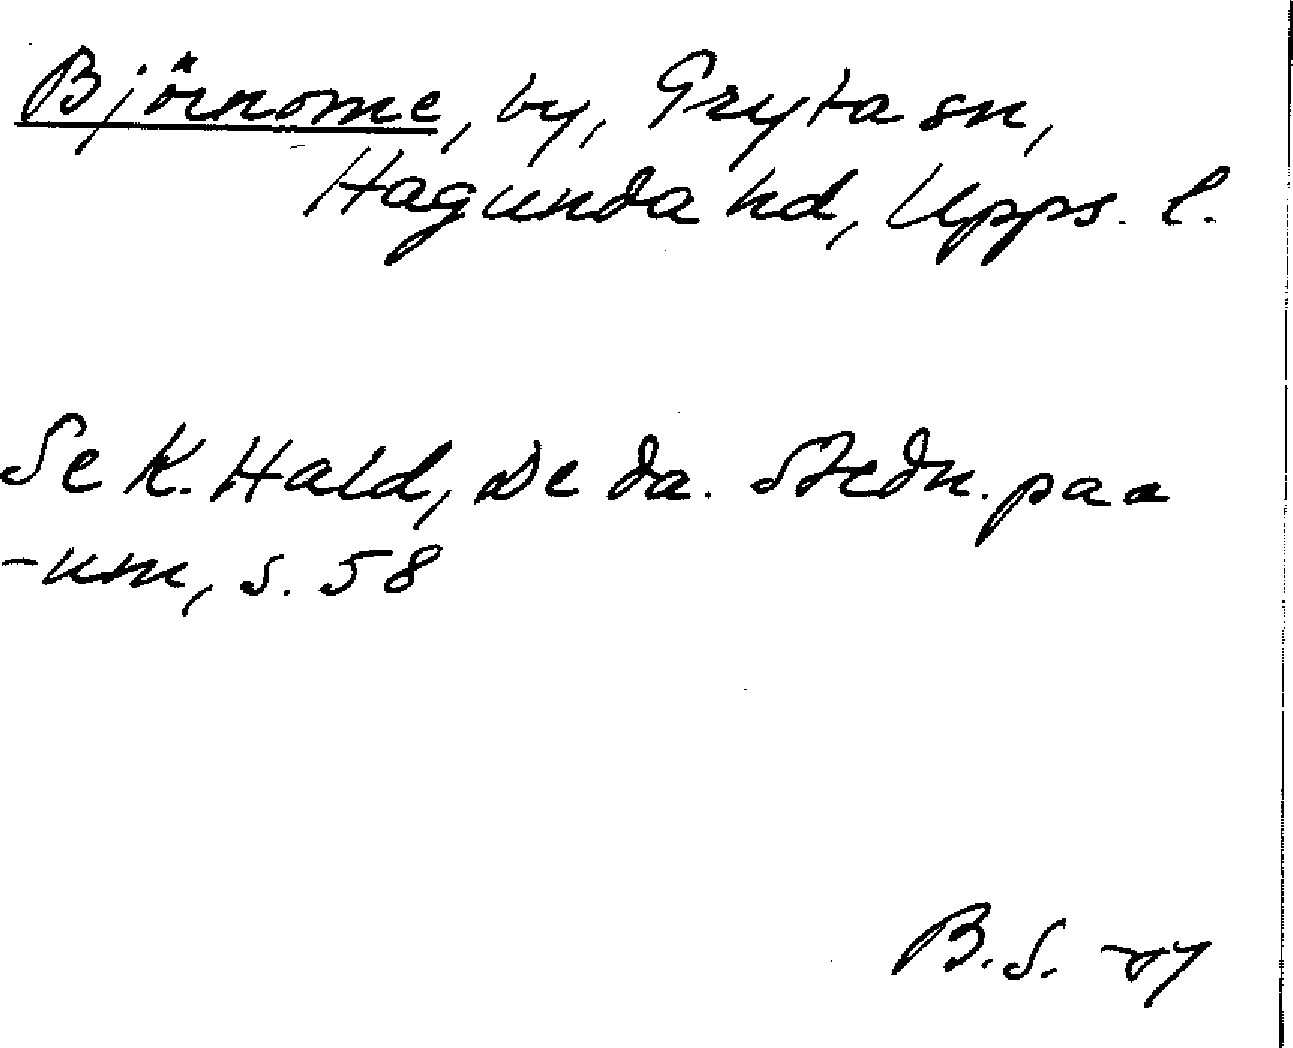 Björnome, by, Gryta sn,
Hagunda hd, Upps. l.
Se K. Hald, De da. Stedn. paa
-um, s. 58
B.S.